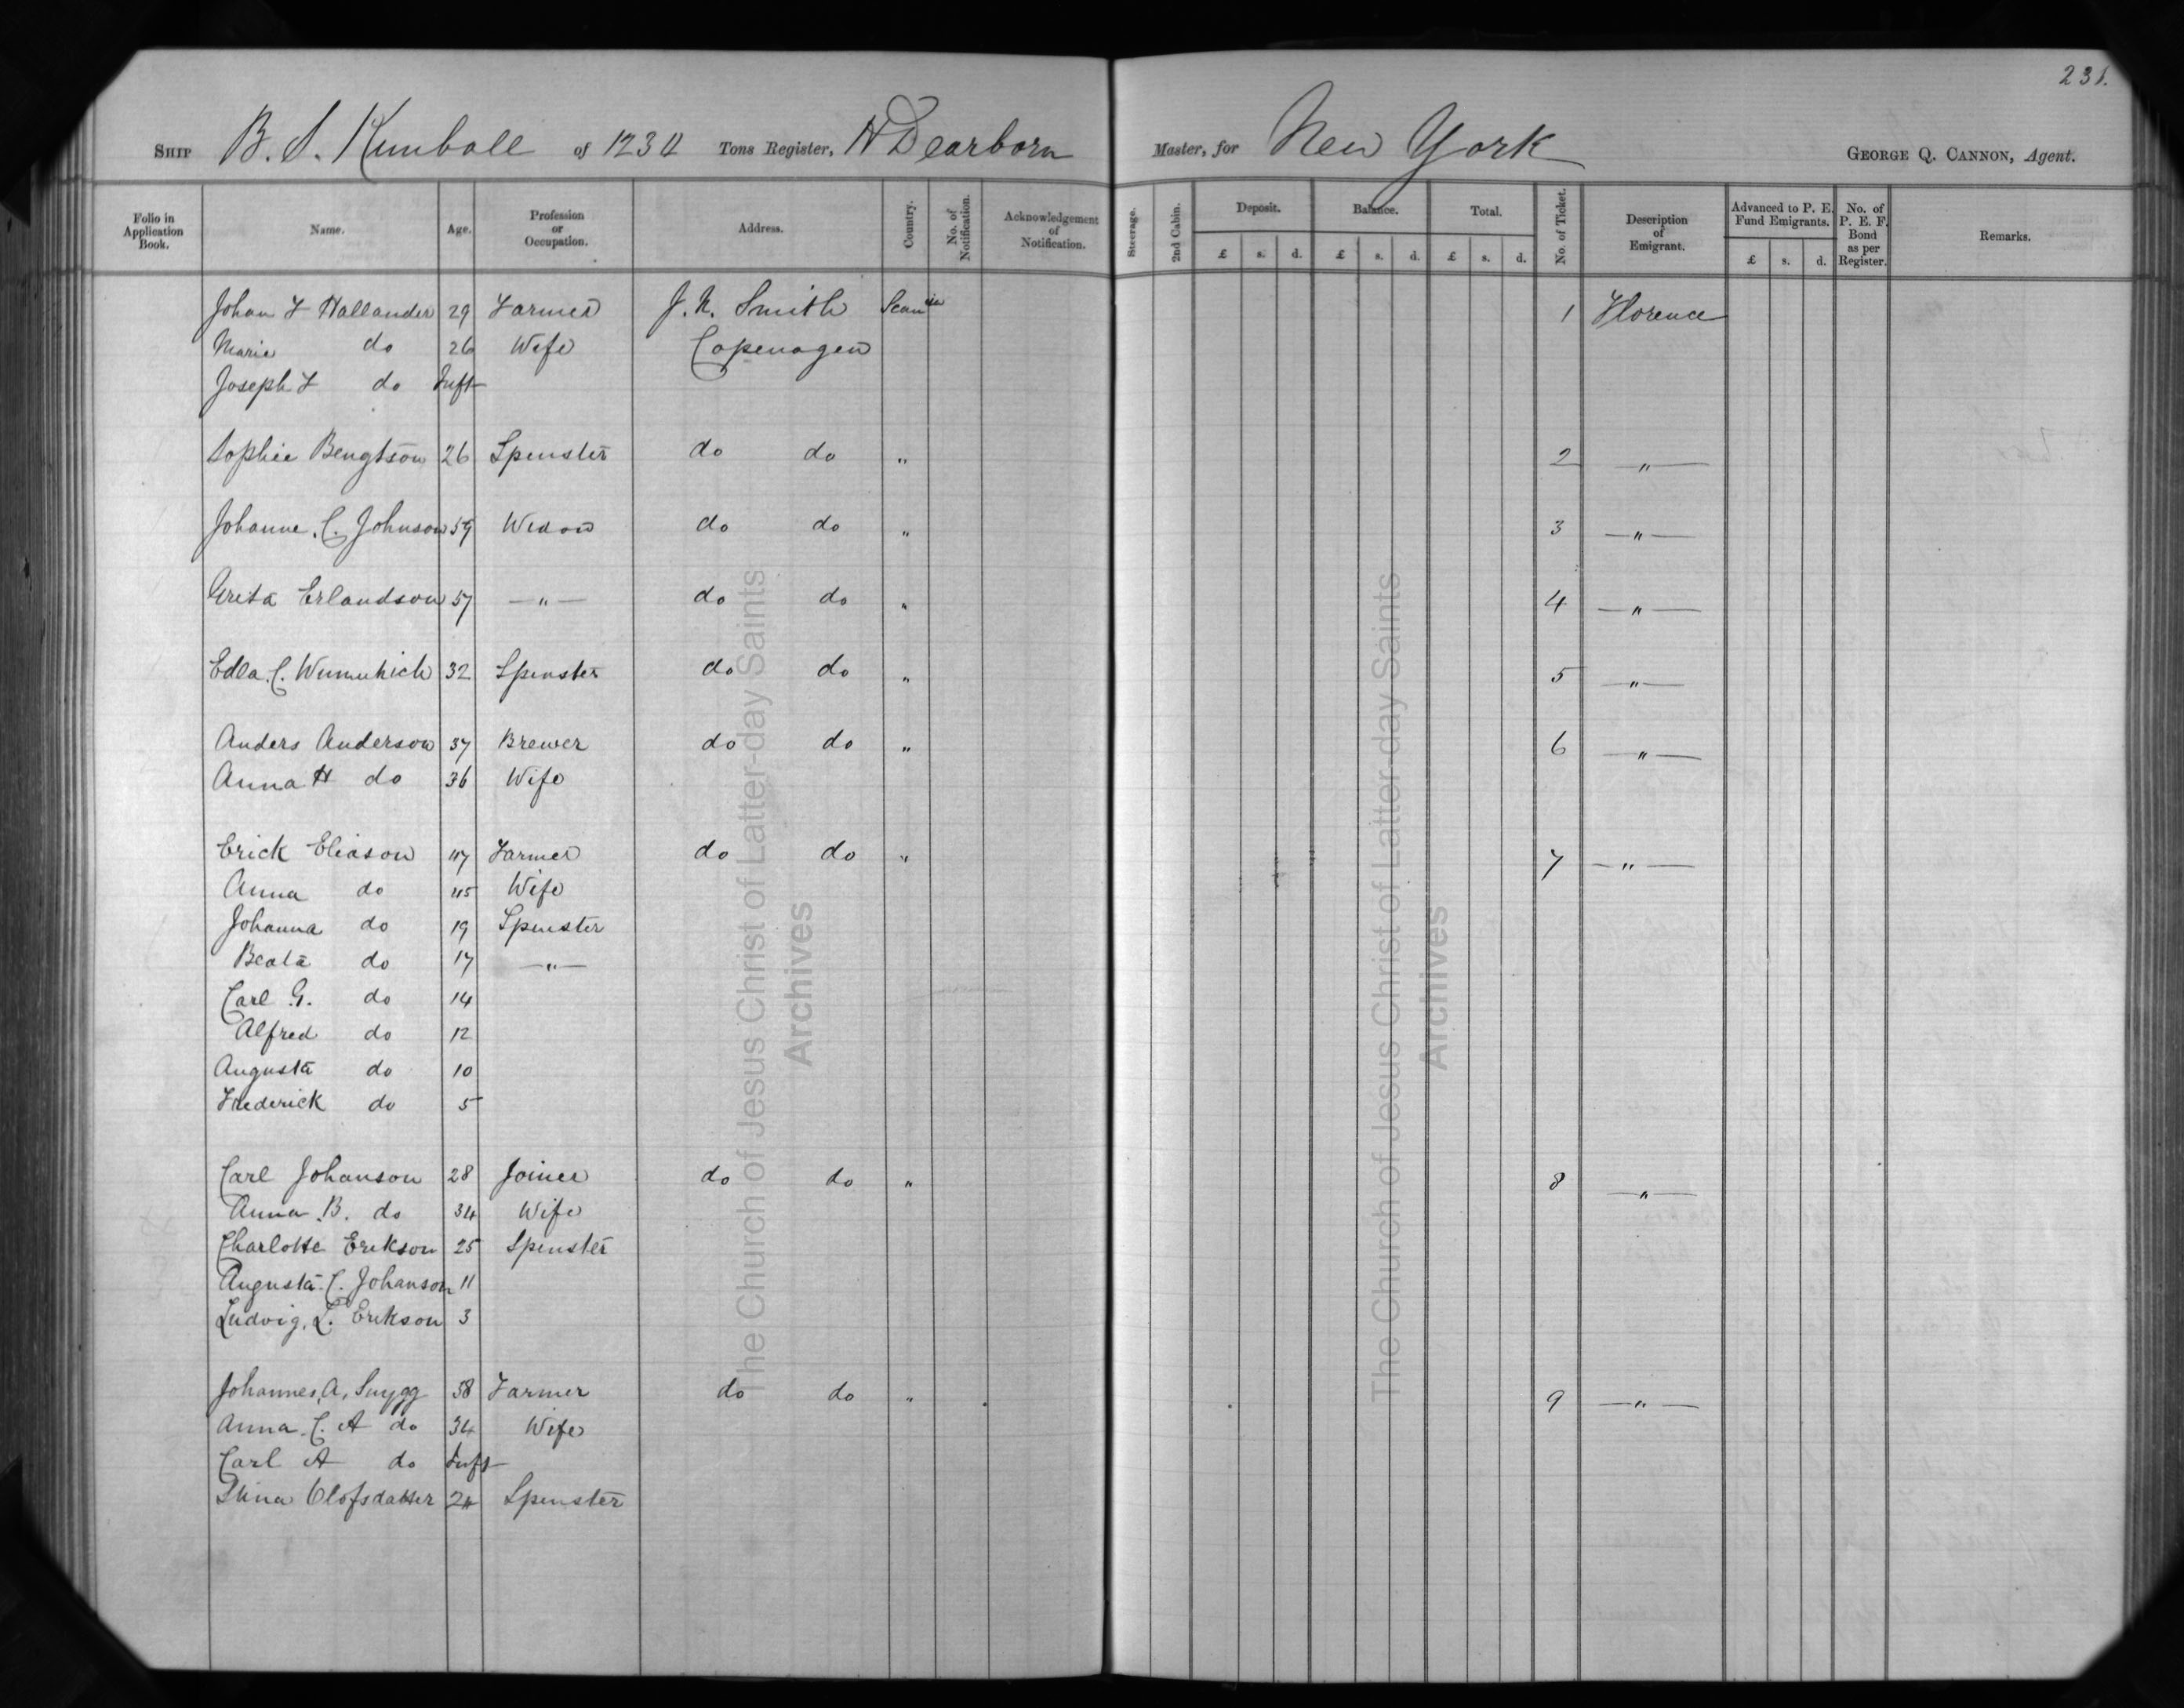 231.
SHIP B. S. Kimball of 1230 Tons Register, H Dearborn Master, for New York GEORGE Q. CANNON, Agent.
Folio in Application Book. Name. Age. Profession or Occupation. Address. Country. No. of Notification. Acknowledgement of Notification. Steerage. 2nd Cabin. Deposit. Balance. Total. No. of Ticket. Description of Emigrant. Advanced to P. E. Fund Emigrants. No. of P. E. F. Bond as per Register. Remarks.
£ s. d. £ s. d. £ s. d. £ s. d.
Johan F Hallander 29 Farmer J. N. Smith Scania 1 Florence
Marie do 26 Wife Copenagen
Joseph F do Inft
Sophie Bengtson 26 Spenster do do " 2 "
Johanne. C. Johnson 59 Widow do do " 3 "
Greta Erlandson 57 " do do " 4 "
Edla. C. 32 Spenster do do " 5 "
Anders Anderson 37 Brewer do do " 6 "
Anna H do 36 Wife
Erick Eliason 47 Farmer do do " 7 "
Anna do 45 Wife
Johanna do 19 Spenster
Beata do 17 "
Carl G. do 14
Alfred do 12
Augusta do 10
Frederick do 5
Carl Johanson 28 Joiner do do " 8 "
Anna. B. do 34 Wife
Charlotte Erikson 25 Spenster
Augusta. C. Johanson 11
Ludvig. L. Erikson 3
Johannes, A, Snygg 38 Farmer do do " 9 "
Anna. C. A do 34 Wife
Carl A do Inft
Stina Olofsdatter 24 Spenster
The Church of Jesus Christ of Latter-day Saints
Archives
The Church of Jesus Christ of Latter-day Saints
Archives